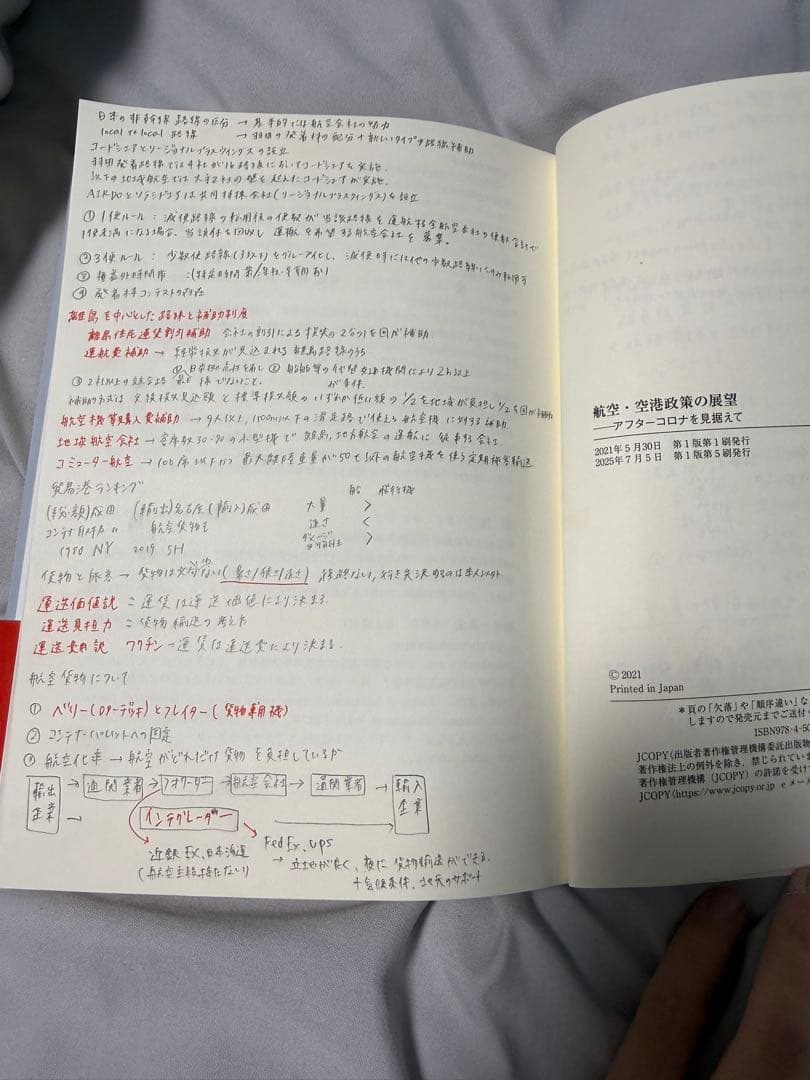 日本の非幹線路線の区分 → 基本的には航空会社の努力
local to local 路線 → 羽田の発着枠の配分 + 新しいタイプの路線補助
コードシェアとリージョナルプラスウイングスの設立
羽田発着路線では4社が16路線においてコードシェアを実施.
以下の地域航空では大手2社の壁を超えたコードシェアが実施.
AIRDOとソラシドエアは共同持株会社(リージョナルプラスウィングス)を設立
① 1便ルール : 減便路線の転用後の便数が当該路線を運航する全航空会社の便数合計で
1便未満になる場合、当該枠を回収し運航を希望する航空会社を募集。
② 3便ルール : 少数便路線(3以下)をグループ化し、減便時には他の少数路線にのみ転用可
③
④ 発着枠コンテストの存在
離島を中心とした路線と補助制度
離島住民運賃割引補助 会社の割引による損失の2分の1を国が補助
運航費補助 → 経常損失が見込まれる離島路線のうち
② 船舶等の代替交通機関により2h以上
③ 2社以上の競合路線でないこと. が条件.
補助の方式は 実績損失見込額と標準損失額のいずれか低い額の1/2を地域が負担し1/2を国が補助
航空機等購入費補助 → 9人以上, 1500m以下の滑走路で使える航空機に対する補助
地域航空会社 → 客席数30-90の小型機で離島, 地方航空の運航に従事する会社
コミューター航空 → 100席以下かつ最大離陸重量が50t以下の航空機を使う定期旅客輸送
貿易港ランキング 船 飛行機
(総額)成田 (輸出)名古屋 (輸入)成田 大量 >
コンテナ 航空貨物も 速さ <
1980 NY 2019 SH ダメージ >
貨物と旅客 →
運送価値説 : 運賃は運送価値により決まる.
運送負担力 : 貨物輸送の考え方
運送費用説 ワクチン → 運賃は運送費により決まる.
航空貨物について
① ベリー(ロワーデッキ)とフレイター(貨物専用機)
② コンテナ・パレットへの固定
③ 航空化率 → 航空がどれだけ貨物を負担しているか
輸出企業 → 通関業者 → フォワーダー → 航空会社 → 通関業者 → 輸入企業
インテグレーター
近鉄Ex, 日本海運 FedEx, UPS
(航空主役持たない) → 立地が良く、夜に貨物輸送ができる.
+ 気候条件、地元のサポート
航空・空港政策の展望
——アフターコロナを見据えて
2021年5月30日 第1版第1刷発行
2025年7月5日 第1版第5刷発行
©2021
Printed in Japan
＊頁の「欠落」や「順序違い」な
しますので発売元までご送付
ISBN978-4-50
JCOPY〈出版者著作権管理機構委託出版物
著作権法上の例外を除き，禁じられていま
著作権管理機構（JCOPY）の許諾を受けて
JCOPY〈https://www.jcopy.or.jp eメー